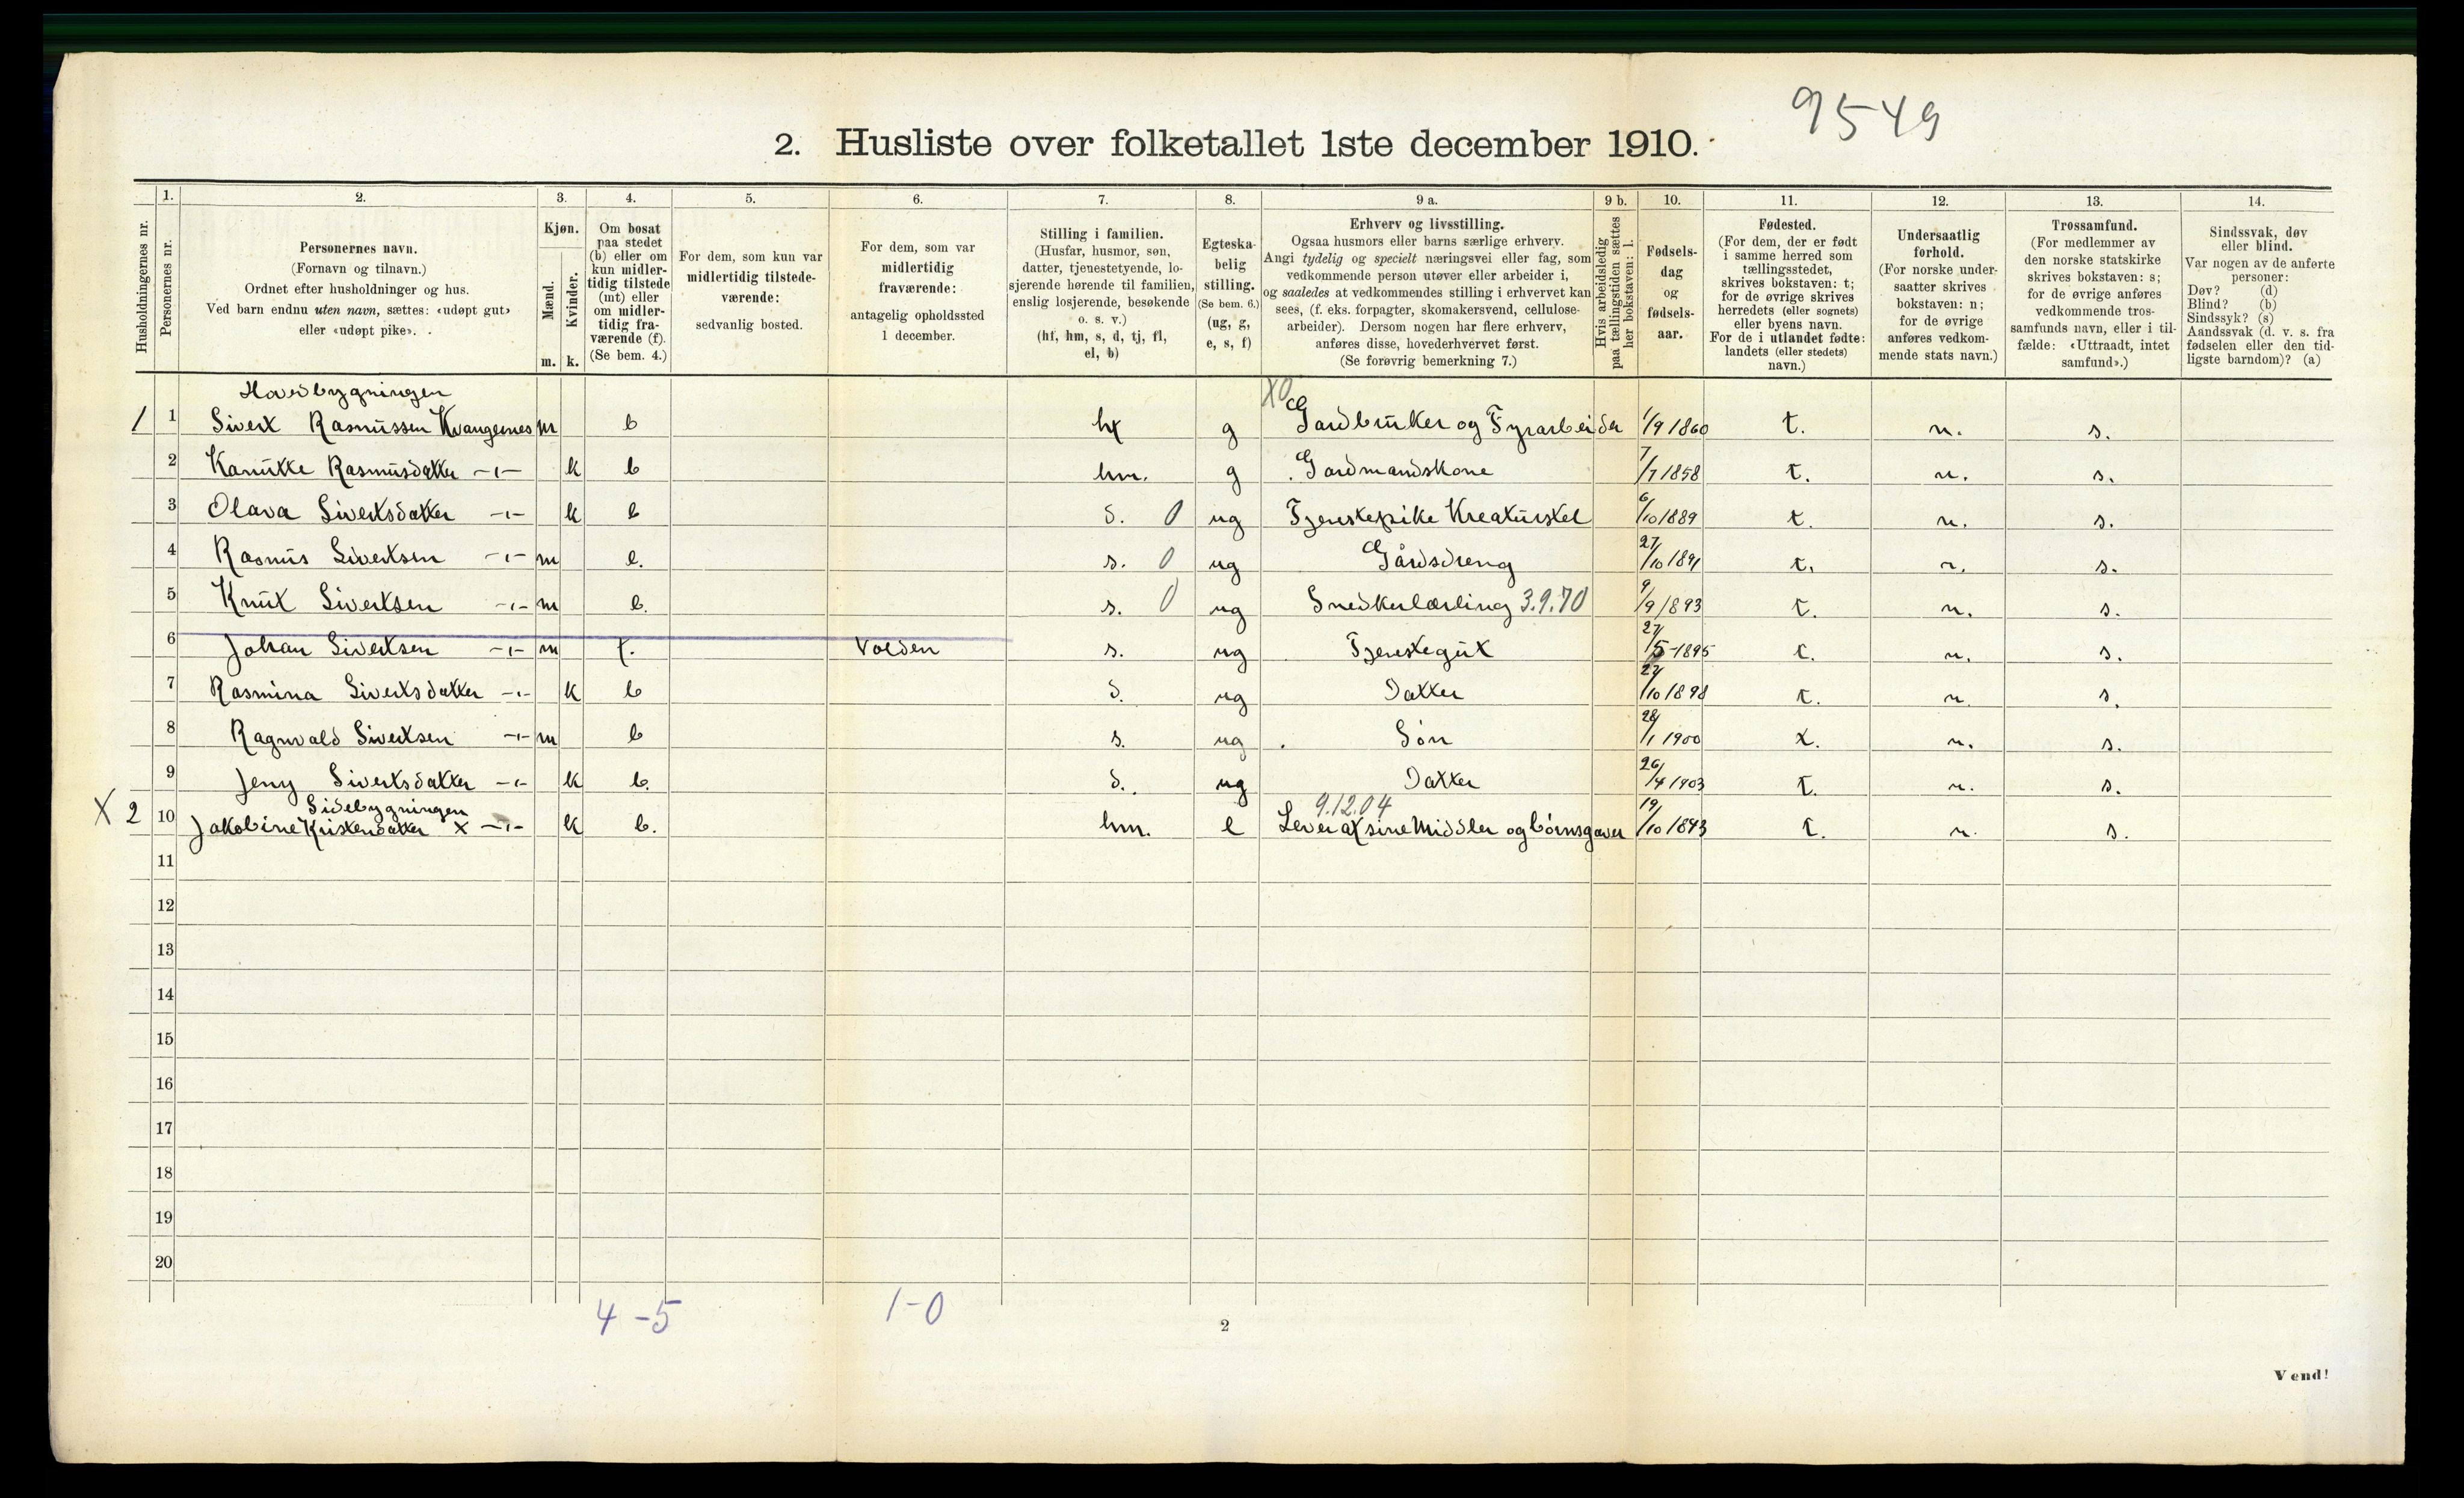 9549
2. Husliste over folketallet 1ste december 1910.
Husholdningernes nr.
1.
Personernes nr.
2.
Personernes navn.
(Fornavn og tilnavn.)
Ordnet efter husholdninger og hus.
Ved barn endnu uten navn, sættes: «udøpt gut»
eller «udøpt pike».
3.
Kjøn.
Mænd.
Kvinder.
m. k.
4.
Om bosat
paa stedet
(b) eller om
kun midler-
tidig tilstede
(mt) eller
om midler-
tidig fra-
værende (f).
(Se bem. 4.)
5.
For dem, som kun var
midlertidig tilstede-
værende:
sedvanlig bosted.
6.
For dem, som var
midlertidig
fraværende:
antagelig opholdssted
1 december.
7.
Stilling i familien.
(Husfar, husmor, søn,
datter, tjenestetyende, lo-
sjerende hørende til familien,
enslig losjerende, besøkende
o. s. v.)
(hf, hm, s, d, tj, fl,
el, b)
8.
Egteska-
belig
stilling.
(Se bem. 6.)
(ug, g,
e, s, f)
9 a.
Erhverv og livsstilling.
Ogsaa husmors eller barns særlige erhverv.
Angi tydelig og specielt næringsvei eller fag, som
vedkommende person utøver eller arbeider i,
og saaledes at vedkommendes stilling i erhvervet kan
sees, (f. eks. forpagter, skomakersvend, cellulose-
arbeider). Dersom nogen har flere erhverv,
anføres disse, hovederhvervet først.
(Se forøvrig bemerkning 7.)
9 b.
Hvis arbeidsledig
paa tællingstiden sættes
her bokstaven: l.
10.
Fødsels-
dag
og
fødsels-
aar.
11.
Fødested.
(For dem, der er født
i samme herred som
tællingsstedet,
skrives bokstaven: t;
for de øvrige skrives
herredets (eller sognets)
eller byens navn.
For de i utlandet fødte:
landets (eller stedets)
navn.)
12.
Undersaatlig
forhold.
(For norske under-
saatter skrives
bokstaven: n;
for de øvrige
anføres vedkom-
mende stats navn.)
13.
Trossamfund.
(For medlemmer av
den norske statskirke
skrives bokstaven: s;
for de øvrige anføres
vedkommende tros-
samfunds navn, eller i til-
fælde: «Uttraadt, intet
samfund».)
14.
Sindssvak, døv
eller blind.
Var nogen av de anførte
personer:
Døv? (d)
Blind? (b)
Sindssyk? (s)
Aandssvak (d. v. s. fra
fødselen eller den tid-
ligste barndom)? (a)
Hovedbygningen
1 1 Sivert Rasmussen Kvangernes m b hf g X0 Gardbruker og Fyrarbeider 1/9 1860 t. n. s.
2 Kanutte Rasmusdatter -"- k b hm. g Gardmandskone 7/7 1858 t. n. s.
3 Olava Sivertsdatter -"- k b d. 0 ug Tjenestepike Kreaturstel 6/10 1889 t. n. s.
4 Rasmus Sivertsen -"- m b. s. 0 ug Gårdsdreng 27/10 1891 t. n. s.
5 Knut Sivertsen -"- m b. s. 0 ug Snedkerlærling 3.9.70 9/9 1893 t. n. s.
6 Johan Sivertsen -"- m f. Volden s. ug Tjenestegut 27/5-1895 t. n. s.
7 Rasmina Sivertsdatter -"- k b d. ug Datter 27/10 1898 t. n. s.
8 Ragnvald Sivertsen -"- m b s. ug Søn 28/1 1900 t. n. s.
9 Jeny Sivertsdatter -"- k b. d. ug Datter 26/4 1903 t. n. s.
Sidebygningen
X 2 10 Jakobine Kristensdatter x -"- k b. hm. e 9.12.04 Lever af sine Middler og börnsgaver 19/10 1843 t. n. s.
11
12
13
14
15
16
17
18
19
20
4 - 5
1 - 0
2
Vend!